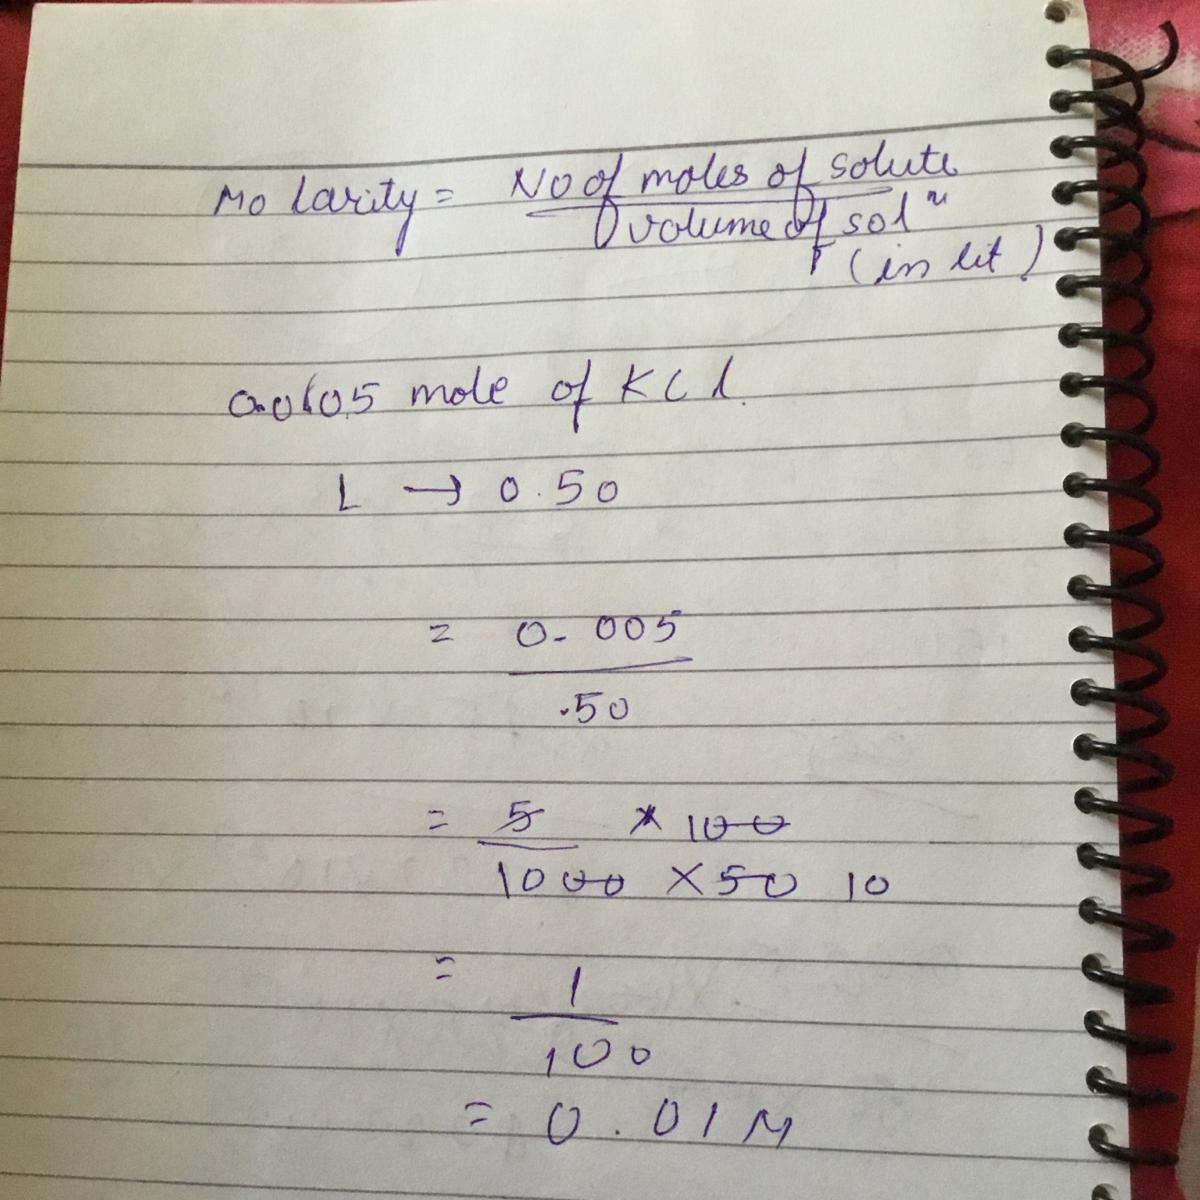 Molarity = No of moles of solute
volume of solⁿ
(in lit)
mole of KCl.
L → 0.50
= 0.005
.50
= 5 × 100
1000 × 50 10
= 1
100
= 0.01 M